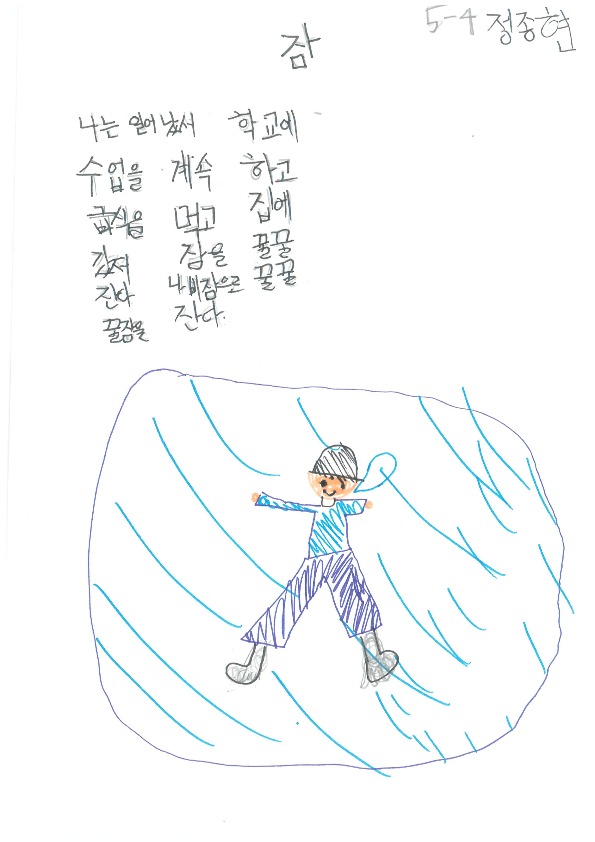 5-4 정종현
잠
나는 일어 났서 학교에
수업을 계속 하고
급식을 먹고 집에
갔저 잠을 꿀꿀
잔다 나비잠으로 꿀꿀
꿀잠을 잔다.